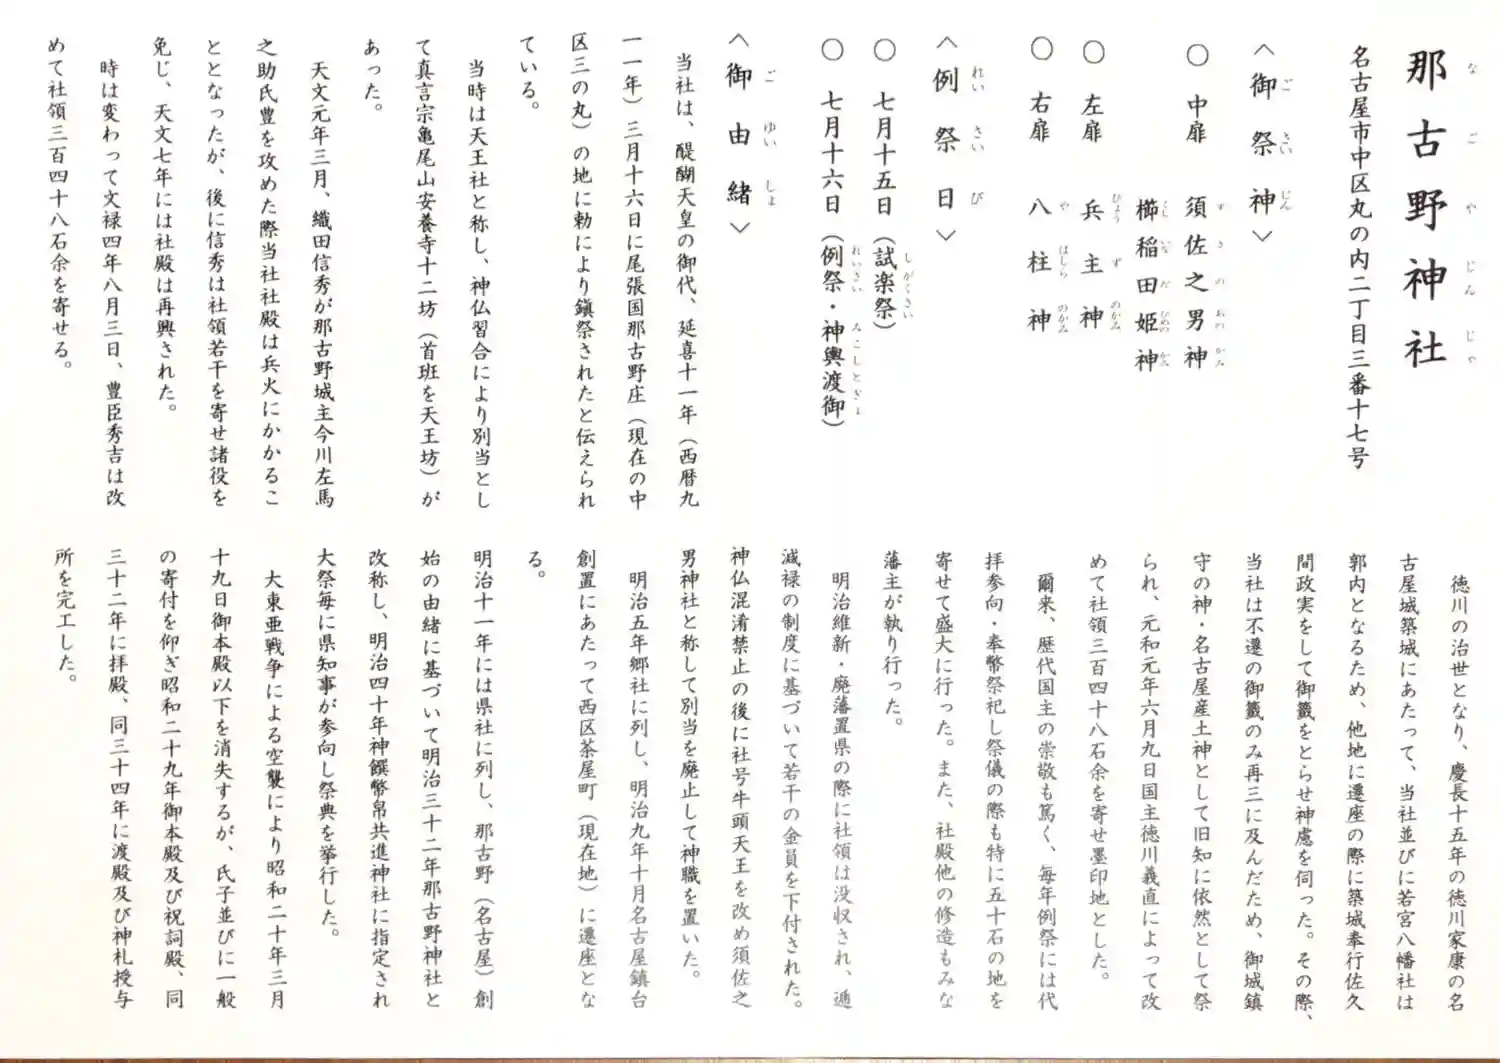 那古野神社
なごやじんじゃ
名古屋市中区丸の内二丁目三番十七号
〈御祭神〉
ごさいじん
○ 中扉 須佐之男神
すさのおのかみ
櫛稲田姫神
くしいなだひめのかみ
○ 左扉 兵主神
ひょうずのかみ
○ 右扉 八柱神
やはしらのかみ
〈例祭日〉
れいさいび
○ 七月十五日(試楽祭)
しがくさい
○ 七月十六日(例祭・神輿渡御)
れいさい みこしとぎょ
〈御由緒〉
ごゆいしょ
当社は、醍醐天皇の御代、延喜十一年(西暦九
一一年)三月十六日に尾張国那古野庄(現在の中
区三の丸)の地に勅により鎮祭されたと伝えられ
ている。
当時は天王社と称し、神仏習合により別当とし
て真言宗亀尾山安養寺十二坊(首班を天王坊)が
あった。
天文元年三月、織田信秀が那古野城主今川左馬
之助氏豊を攻めた際当社社殿は兵火にかかるこ
ととなったが、後に信秀は社領若干を寄せ諸役を
免じ、天文七年には社殿は再興された。
時は変わって文禄四年八月三日、豊臣秀吉は改
めて社領三百四十八石余を寄せる。
徳川の治世となり、慶長十五年の徳川家康の名
古屋城築城にあたって、当社並びに若宮八幡社は
郭内となるため、他地に遷座の際に築城奉行佐久
間政実をして御籤をとらせ神慮を伺った。その際、
当社は不遷の御籤のみ再三に及んだため、御城鎮
守の神・名古屋産土神として旧知に依然として祭
られ、元和元年六月九日国主徳川義直によって改
めて社領三百四十八石余を寄せ墨印地とした。
爾来、歴代国主の崇敬も篤く、毎年例祭には代
拝参向・奉幣祭祀し祭儀の際も特に五十石の地を
寄せて盛大に行った。また、社殿他の修造もみな
藩主が執り行った。
明治維新・廃藩置県の際に社領は没収され、逓
減禄の制度に基づいて若干の金員を下付された。
神仏混淆禁止の後に社号牛頭天王を改め須佐之
男神社と称して別当を廃止して神職を置いた。
明治五年郷社に列し、明治九年十月名古屋鎮台
創置にあたって西区茶屋町(現在地)に遷座とな
る。
明治十一年には県社に列し、那古野(名古屋)創
始の由緒に基づいて明治三十二年那古野神社と
改称し、明治四十年神饌幣帛共進神社に指定され
大祭毎に県知事が参向し祭典を挙行した。
大東亜戦争による空襲により昭和二十年三月
十九日御本殿以下を消失するが、氏子並びに一般
の寄付を仰ぎ昭和二十九年御本殿及び祝詞殿、同
三十二年に拝殿、同三十四年に渡殿及び神札授与
所を完工した。